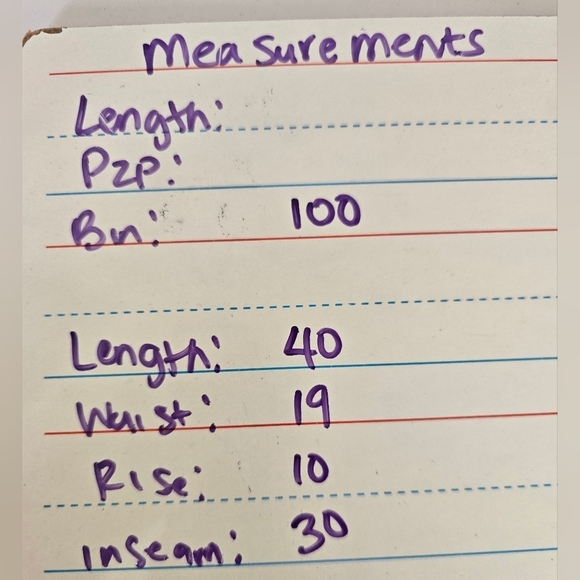 Measurements
Length:
P2P:
Bn: 100
Length: 40
Waist: 19
Rise: 10
Inseam: 30